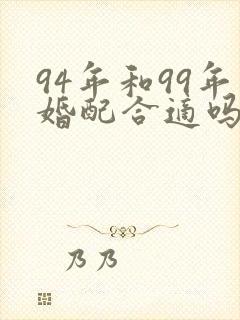 94年和99年
婚配合适吗
乃乃